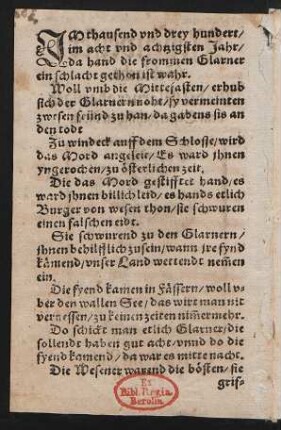 IM thausend vnd drey hundert/
im acht vnd achtzigsten Jahr/
da hand die frommen Glarner
ein schlacht gethon ist wahr.
Woll vmb die Mittefasten/erhub
sich der Glarnern noht/sy vermeinten
zwesen feünd zu han/da gabens sis an
den todt
Zu windeck auff dem Schlosse/wird
das Mord angeleit/Es ward jhnen
yngerochen/zu österlichen zeit.
Die das Mord gestifftet hand/es
ward jhnen billich leid/es hands etlich
Burger von wesen thon/sie schwuren
einen falschen eidt.
Sie schwurend zu den Glarnern/
jhnen behilfflich zu sein/wann jre fynd
kämend/vnser Land wettendt nemen
ein.
Die fyend kamen in Fässern/woll v-
ber den wallen See/das wirt man nit
vergessen/zu keinen zeiten nimmer mehr.
Do schickt man etlich Glarner/die
sollendt haben gut acht/vnnd do die
fyend kamend/da war es mitte nacht.
Die Wesener warend die bösten/sie
grif-
Ex
Bibl. Regia
Berolin.